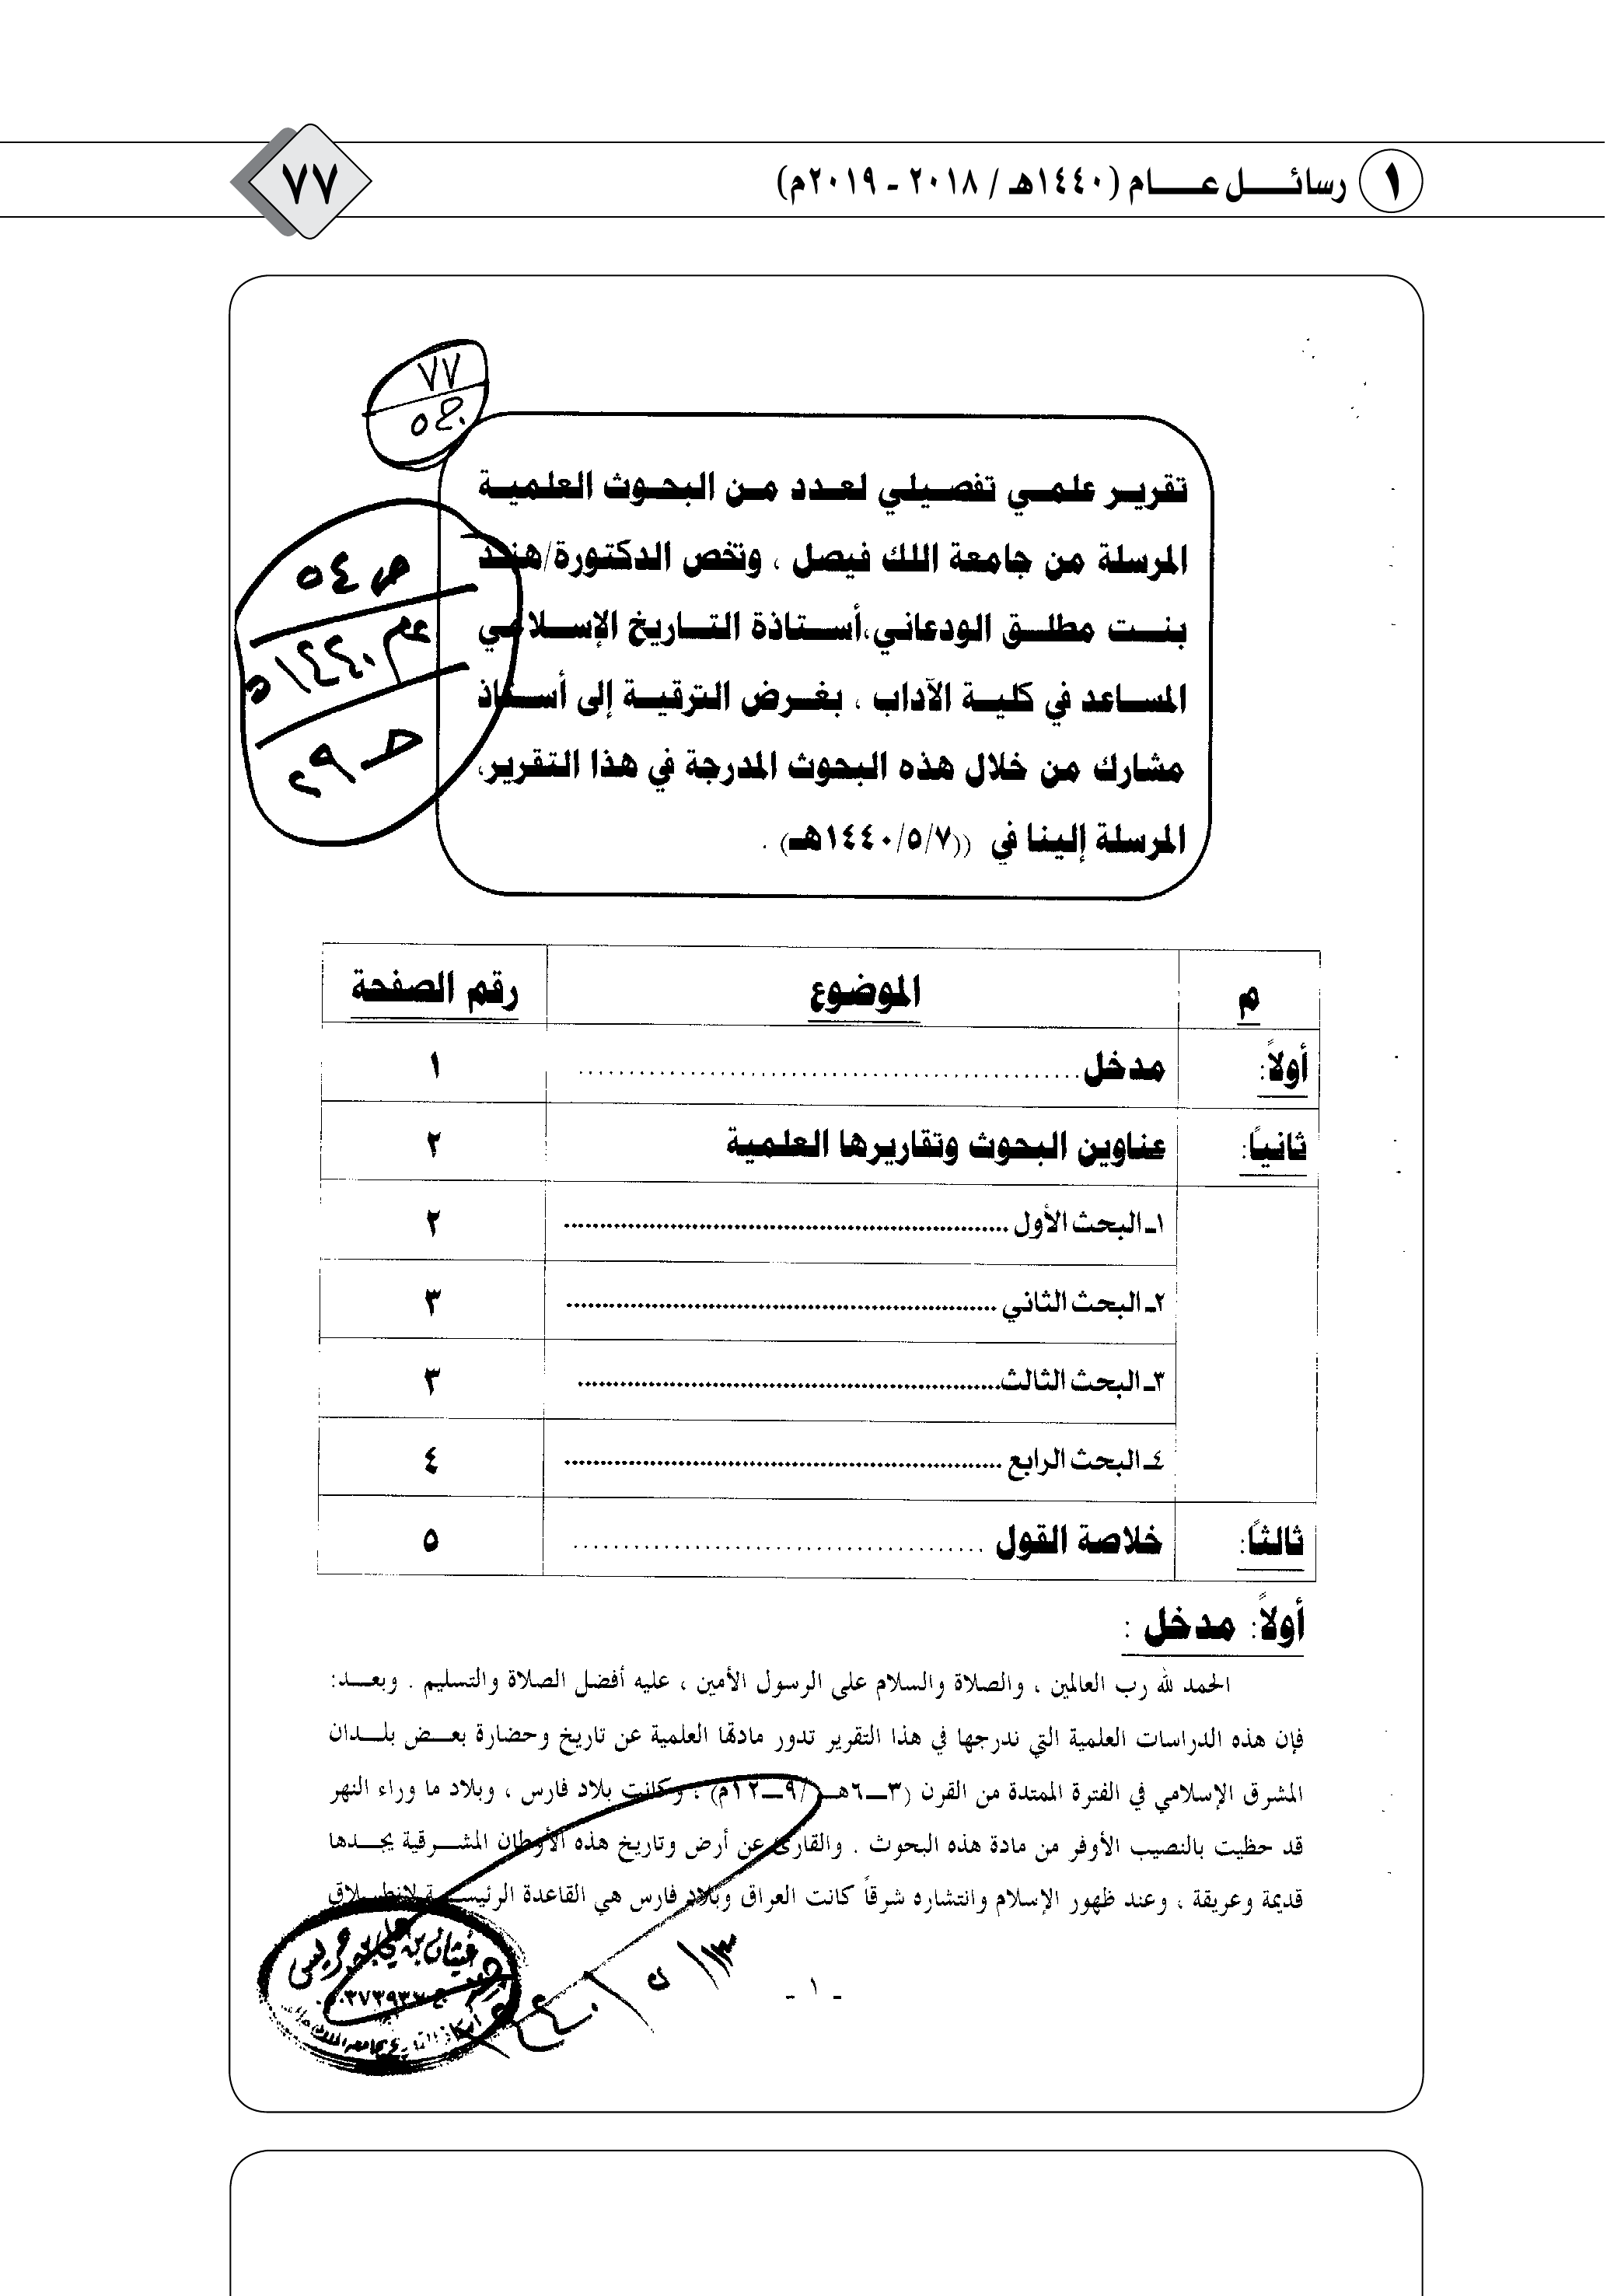 ١ رسائل عام (١٤٤٠هـ / ٢٠١٨ - ٢٠١٩م) ٧٧
٧٧
ص ٥٤
عام ١٤٤٠هـ
حـ ٢٩
تقرير علمي تفصيلي لعدد من البحوث العلمية
المرسلة من جامعة الملك فيصل ، وتخص الدكتورة/هند
بنت مطلق الودعاني،أستاذة التاريخ الإسلامي
المساعد في كلية الآداب ، بغرض الترقية إلى أستاذ
مشارك من خلال هذه البحوث المدرجة في هذا التقرير،
المرسلة إلينا في ((١٤٤٠/٥/٧هـ) .
م الموضوع رقم الصفحة
أولاً: مدخل ................................................ ١
ثانياً: عناوين البحوث وتقاريرها العلمية ٢
١ـ البحث الأول ................................................ ٢
٢ـ البحث الثاني ................................................ ٣
٣ـ البحث الثالث................................................ ٣
٤ـ البحث الرابع ................................................ ٤
ثالثاً: خلاصة القول ................................................ ٥
أولاً: مدخل :
الحمد لله رب العالمين ، والصلاة والسلام على الرسول الأمين ، عليه أفضل الصلاة والتسليم . وبعد:
فإن هذه الدراسات العلمية التي ندرجها في هذا التقرير تدور مادتها العلمية عن تاريخ وحضارة بعض بلدان
المشرق الإسلامي في الفترة الممتدة من القرن (٣ــ٦هــ/٩ــ١٢م) ، وكانت بلاد فارس ، وبلاد ما وراء النهر
قد حظيت بالنصيب الأوفر من مادة هذه البحوث . والقارئ عن أرض وتاريخ هذه الأوطان المشرقية يجدها
قديمة وعريقة ، وعند ظهور الإسلام وانتشاره شرقاً كانت العراق وبلاد فارس هي القاعدة الرئيسية لانطلاق
غيثان بن علي بن جريس
ـ ١ ـ